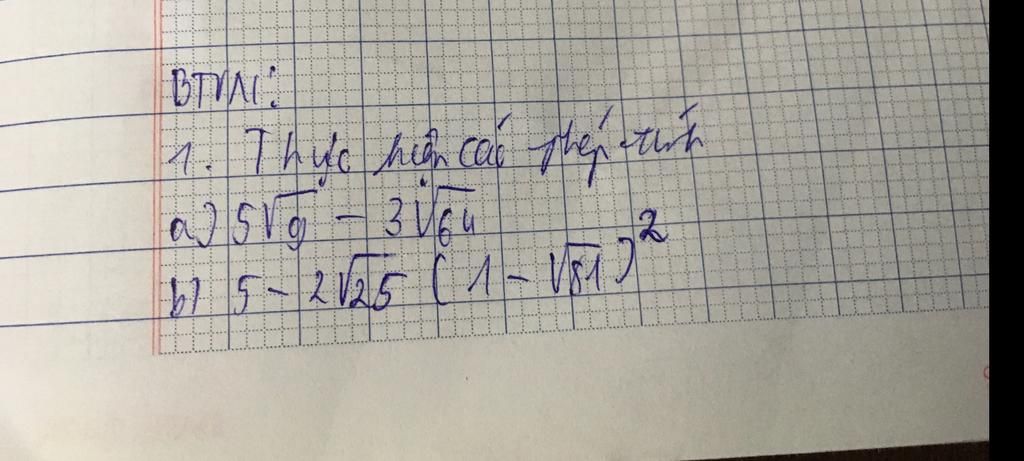 BTVN:
1. Thực hiện các phép tính
a) 5√9 - 3√64
b) 5 - 2√25 (1 - √81)²